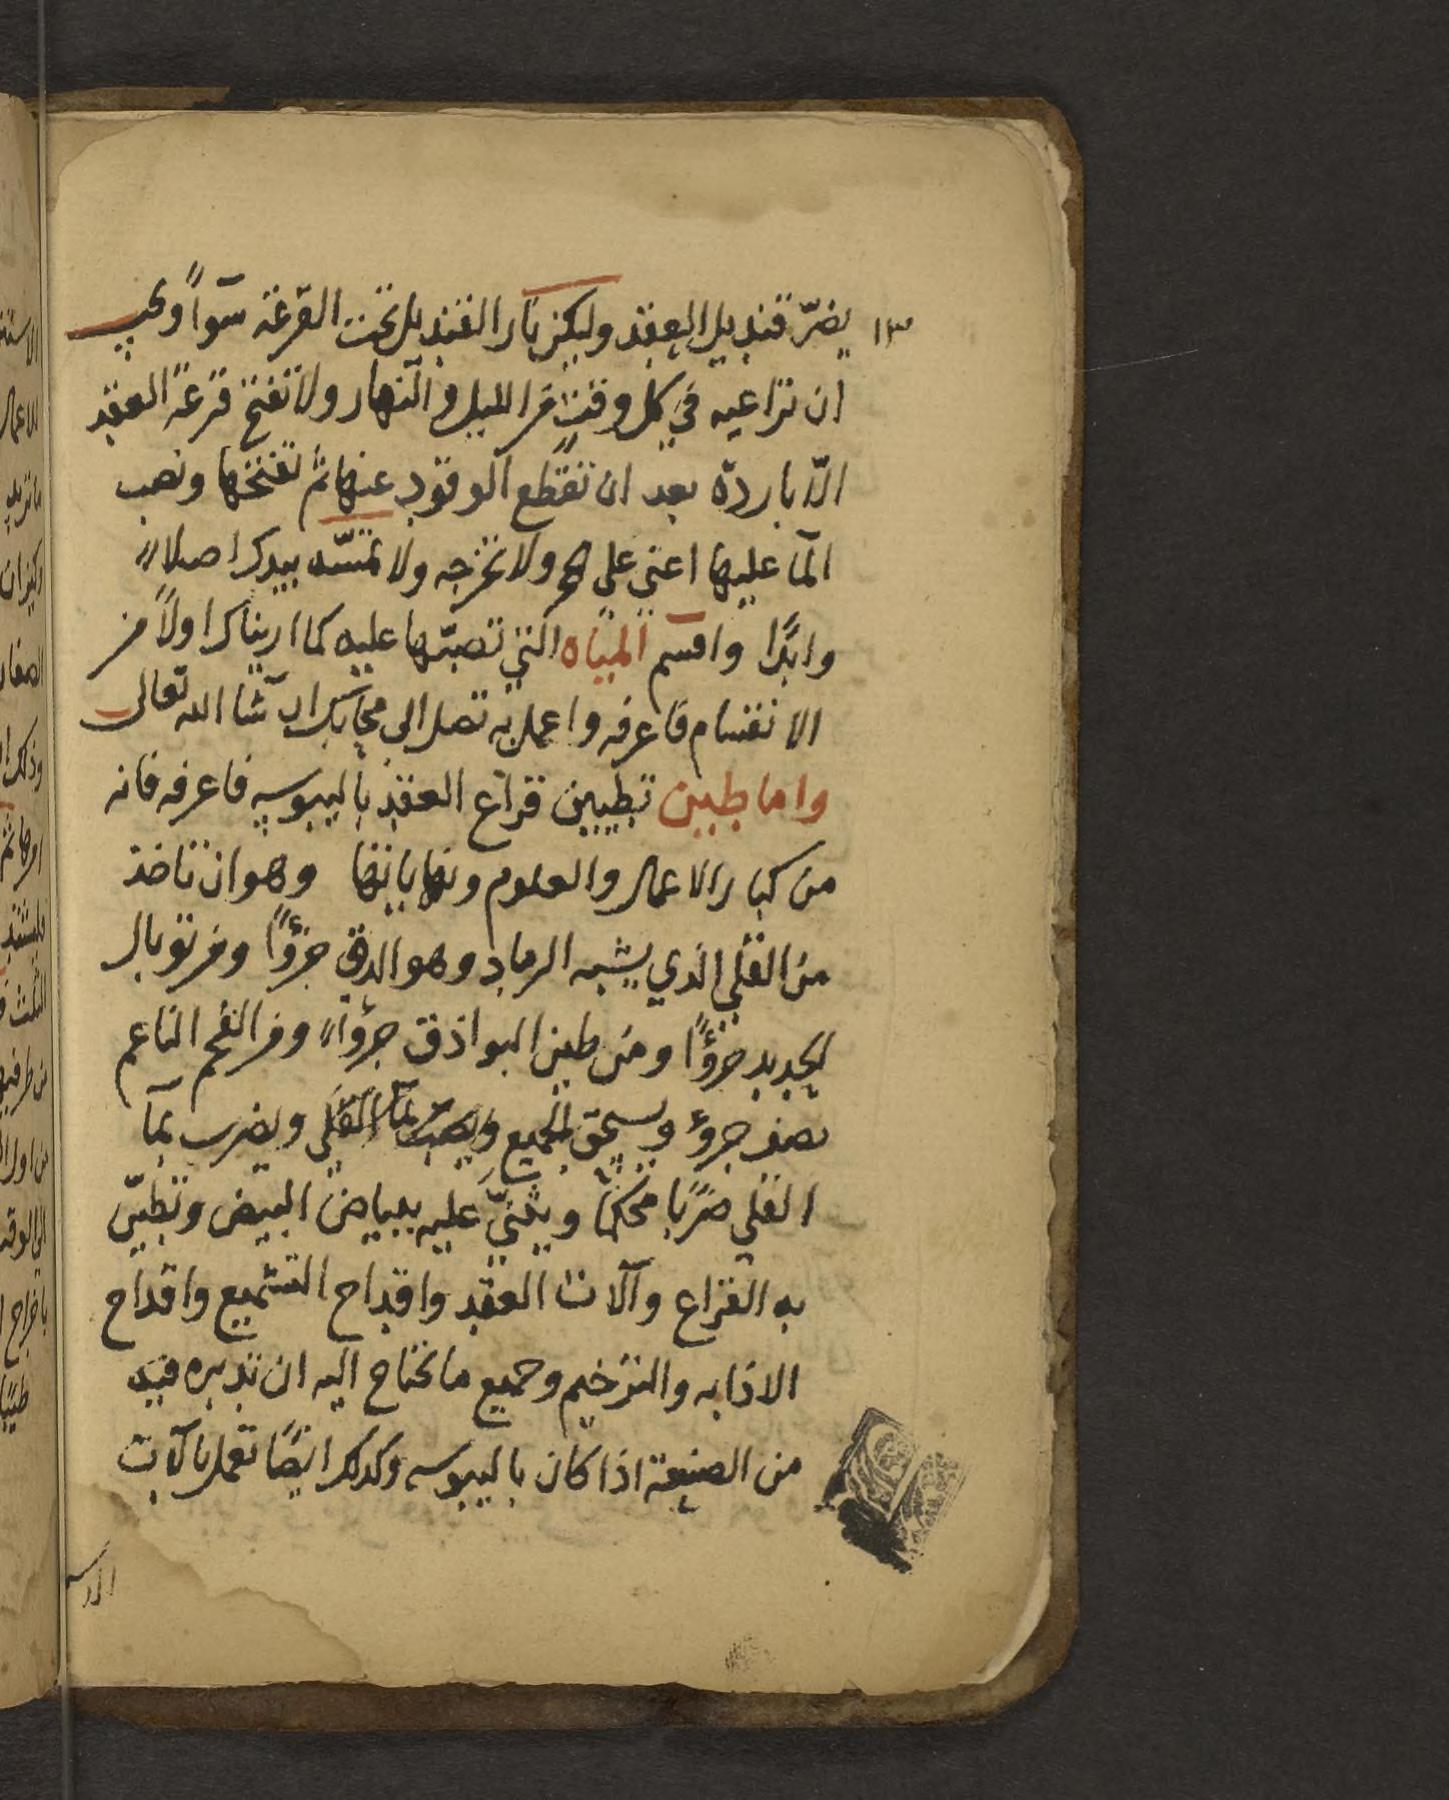 ١٣ يضرّ قنديل العقد وليكن نار القنديل تحت القرعة سوآءً ويجب
ان تراعيه في كل وقت من الليل والنهار ولا تفتح قرعة العقد
الّا باردة بعد ان تقطع الوقود عنها ثم تفتحها وتصب
المآ عليها اعني على ولا تخرجه ولا تمسّه بيدك اصلاً
وابدًا واقسم المياه التي تصبّها عليه كما اريناك اولاً من
الانقسام فاعرفه واعمل به تصل الى محابك ان شا الله تعالى
واما طين تطيين قراع العقد باليبوسه فاعرفه فانه
من كبار الاعمال والعلوم ونهاياتها وهو ان تاخذ
من القلي الذي يشبه الرماد وهو الدق جزؤًا ومن توبال
الحديد جزؤًا ومن طين البواذق جزؤًا ومن الفحم الناعم
نصف جزؤ ويسحق الجميع ويصب بمآ القلي ويضرب بمآ
القلي ضربًا محكمًا ويثنيّ عليه ببياض البيض وتطيّن
به القراع وآلات العقد واقداح التشميع واقداح
الاذابه والترخيم وجميع ما تحتاج اليه ان تدبره فيه
من الصنعة اذا كان باليبوسه وكذلك ايضًا تعمل بآلات